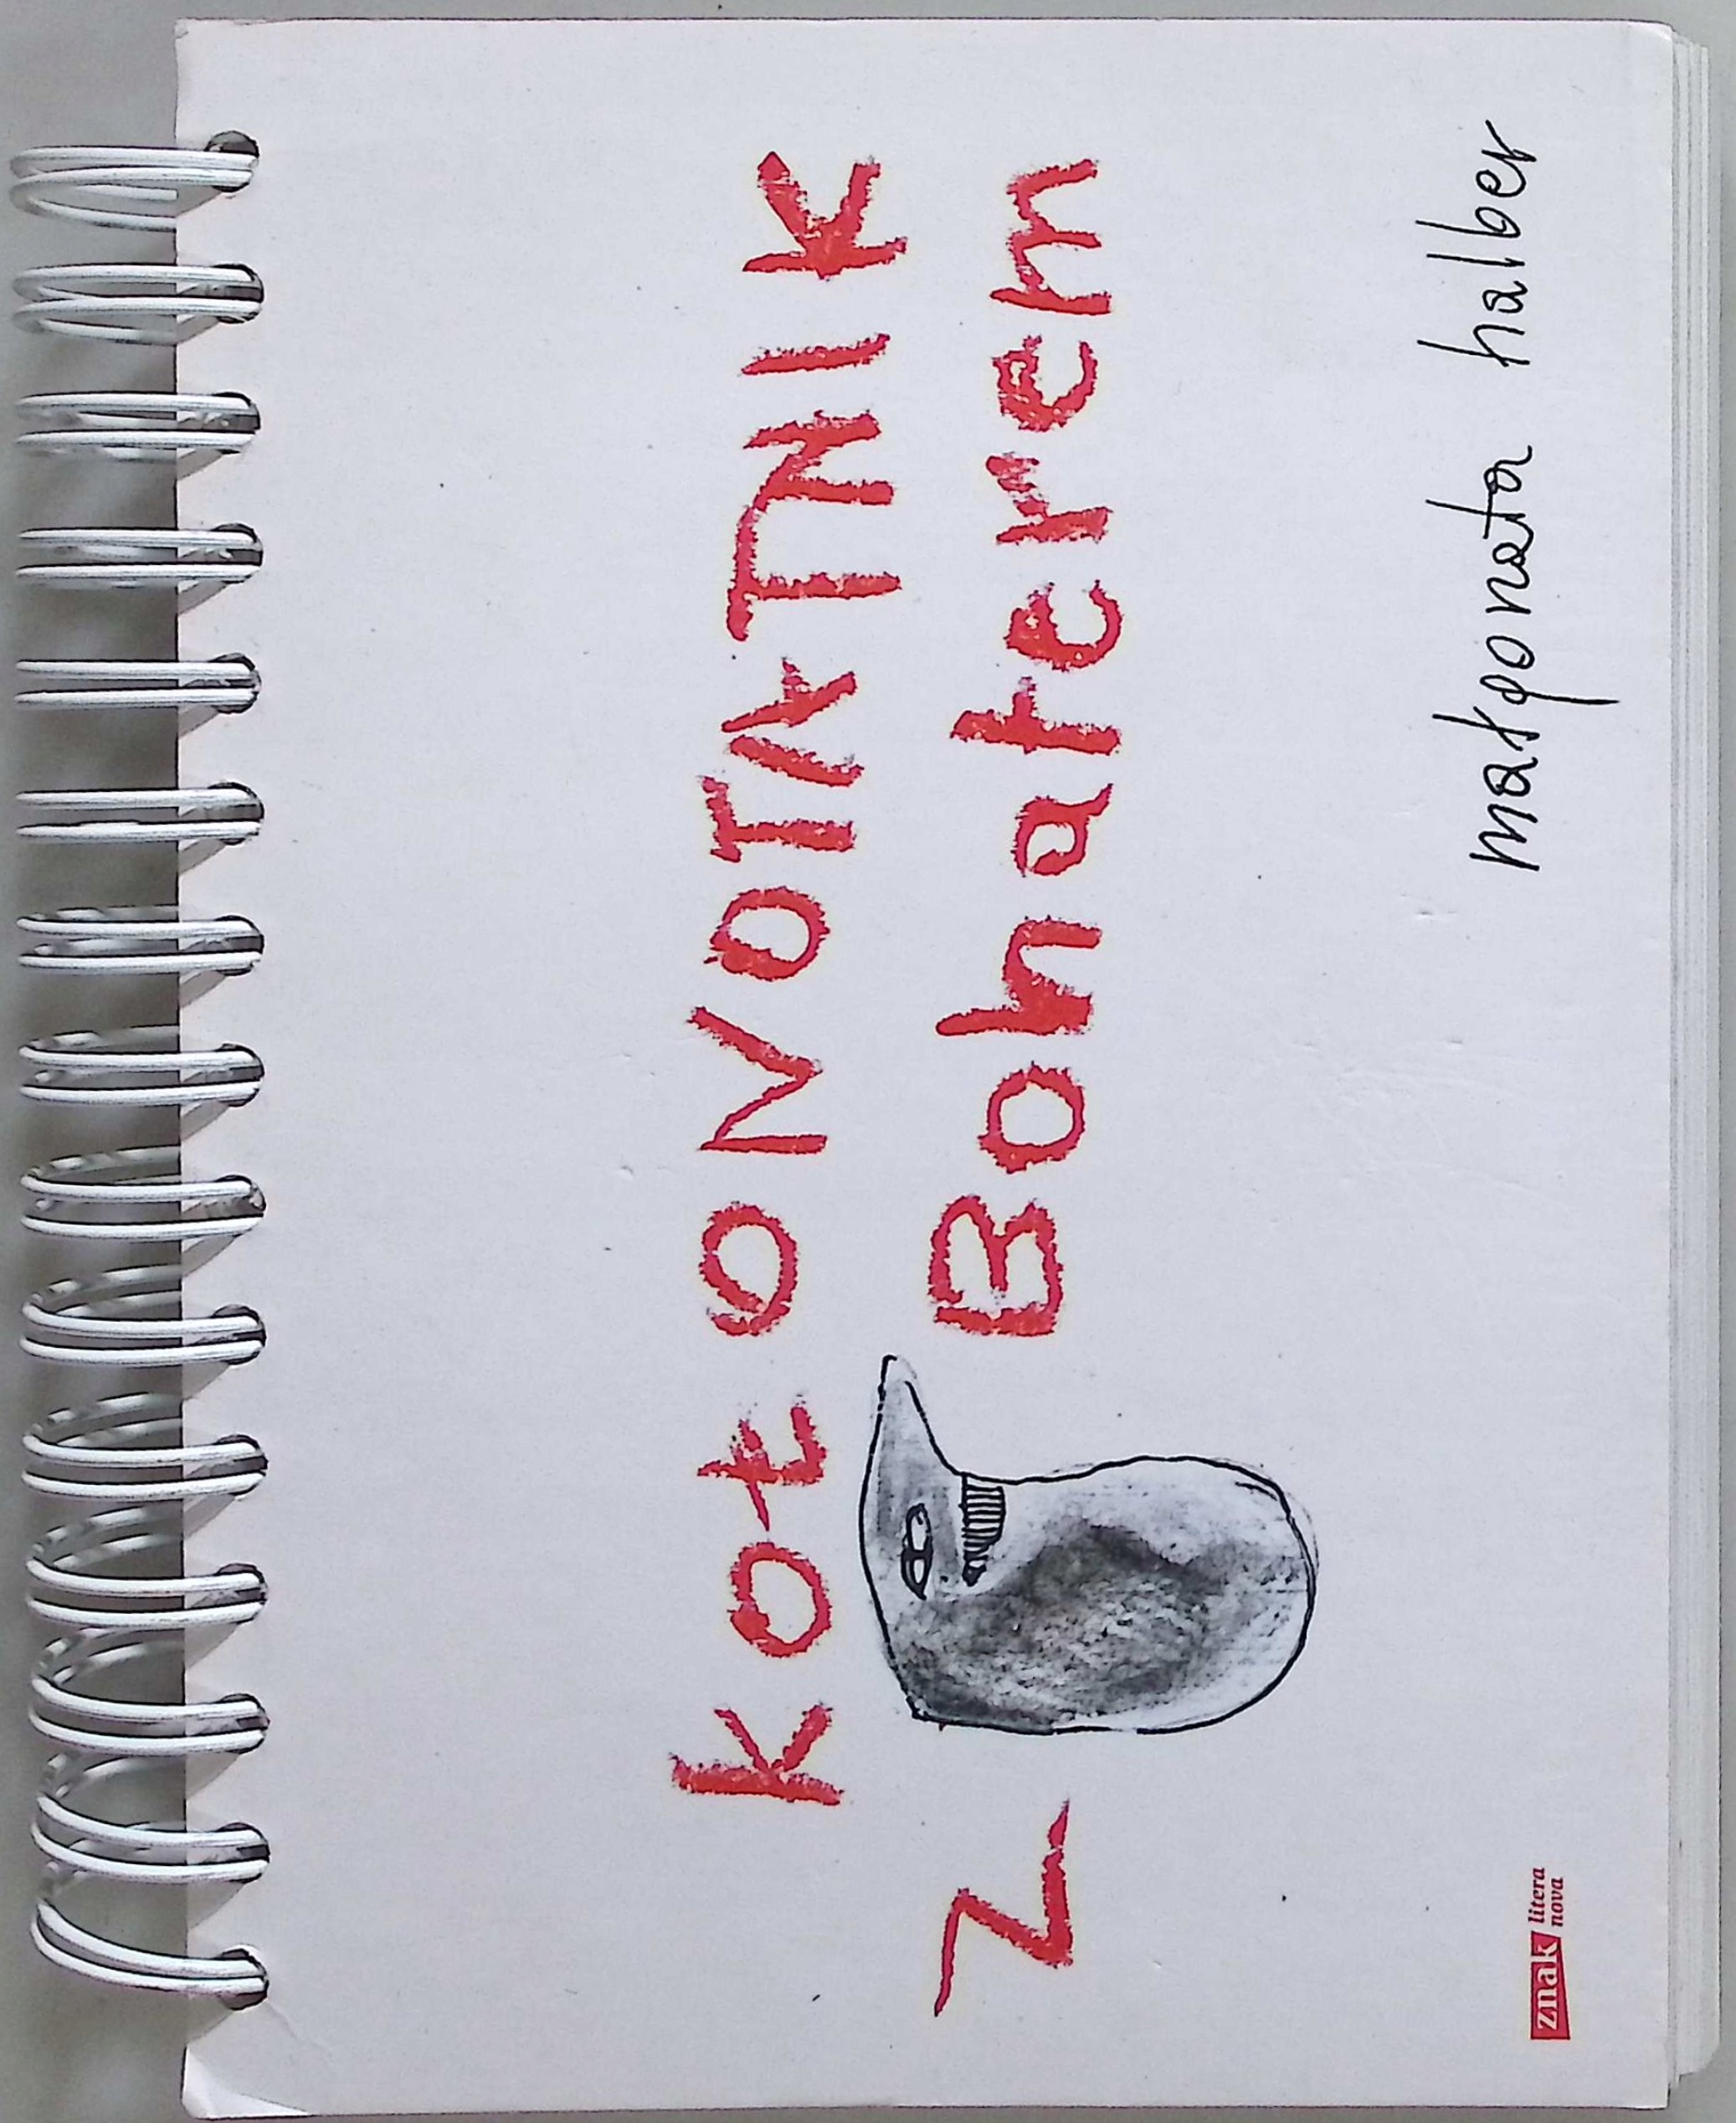 kołoNOTATNIK
z Bohaterem
małgorzata halber
znak litera
nova